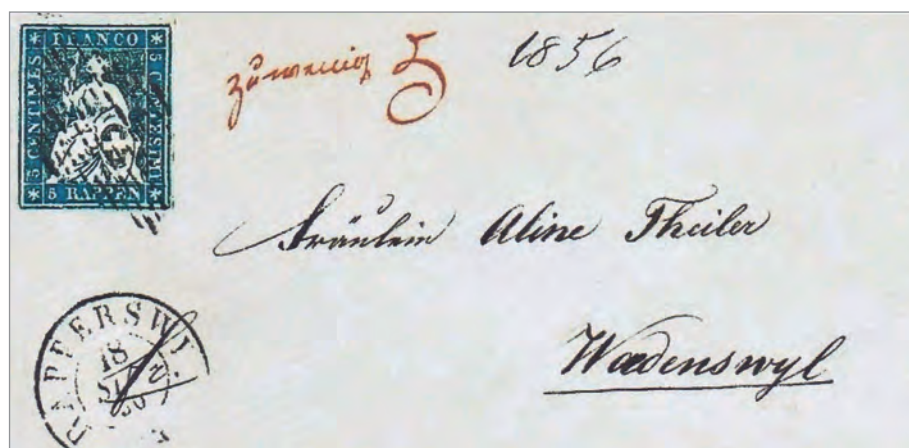 FRANCO
5 CENTIMES
5 CENTESIMI
5 RAPPEN
zu wenig 5
1856
Fräulein Aline Theiler
Wædenswyl
RAPPERSWYL
18